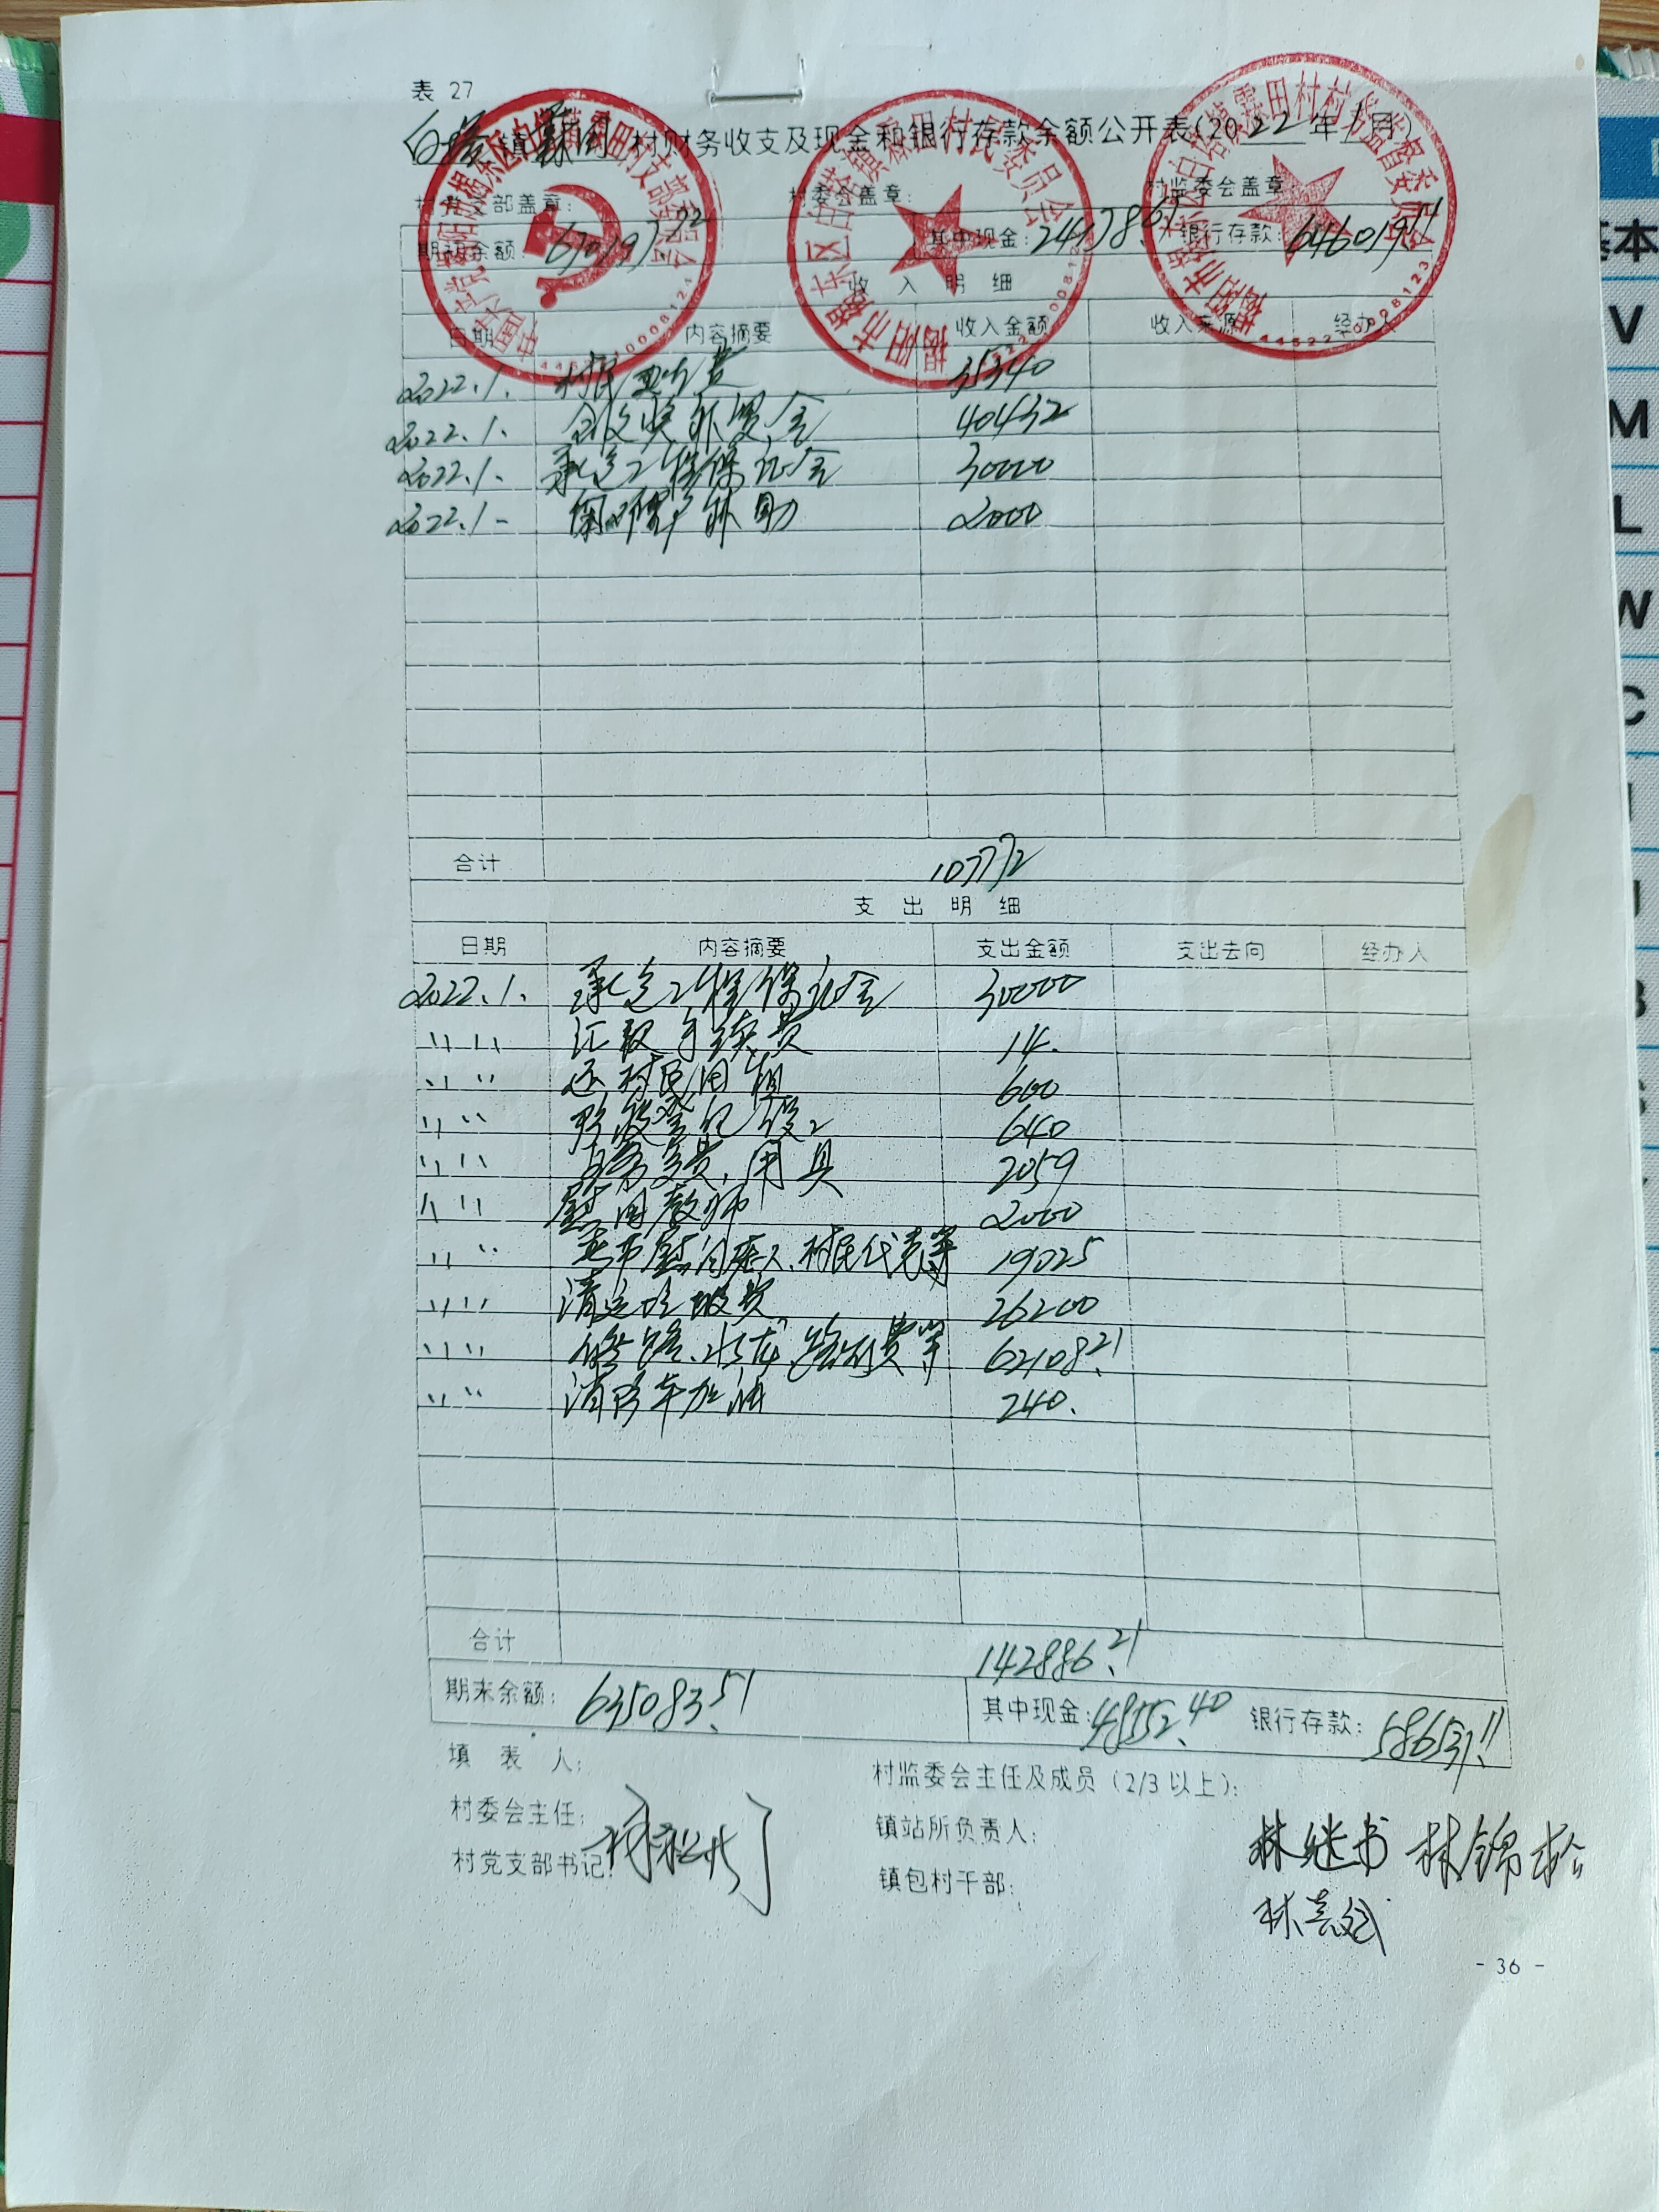 表 27
白塔 镇 霖田 村财务收支及现金和银行存款余额公开表(2022年1月)
村党支部盖章: 村委会盖章: 村监委会盖章:
期初余额: 670197.72 其中现金: 24178.61 银行存款: 646019.11
收 入 明 细
日期 内容摘要 收入金额 收入来源 经办人
2022.1. 村民 35340
2022.1. 奖补资金 40432
2022.1. 承包工程保证金 30000
2022.1- 补助 2000
合计 107772
支 出 明 细
日期 内容摘要 支出金额 支出去向 经办人
2022.1. 承包工程保证金 30000
〃 〃 汇款手续费 14.
〃 〃 还村民田租 600
〃 〃 640
〃 〃 用具 2059
〃 〃 慰问教师 2000
〃 〃 村民代表等 19025
〃 〃 清运垃圾费 26200
〃 〃 修路、水龙 费等 62108.21
〃 〃 消防车加油 240.
合计 142886.21
期末余额: 635083.51 其中现金: 48552.40 银行存款: 586531.11
填 表 人:
村监委会主任及成员（2/3 以上）:
村委会主任:
镇站所负责人:
村党支部书记:
镇包村干部:
林继书 林锦松
- 36 -